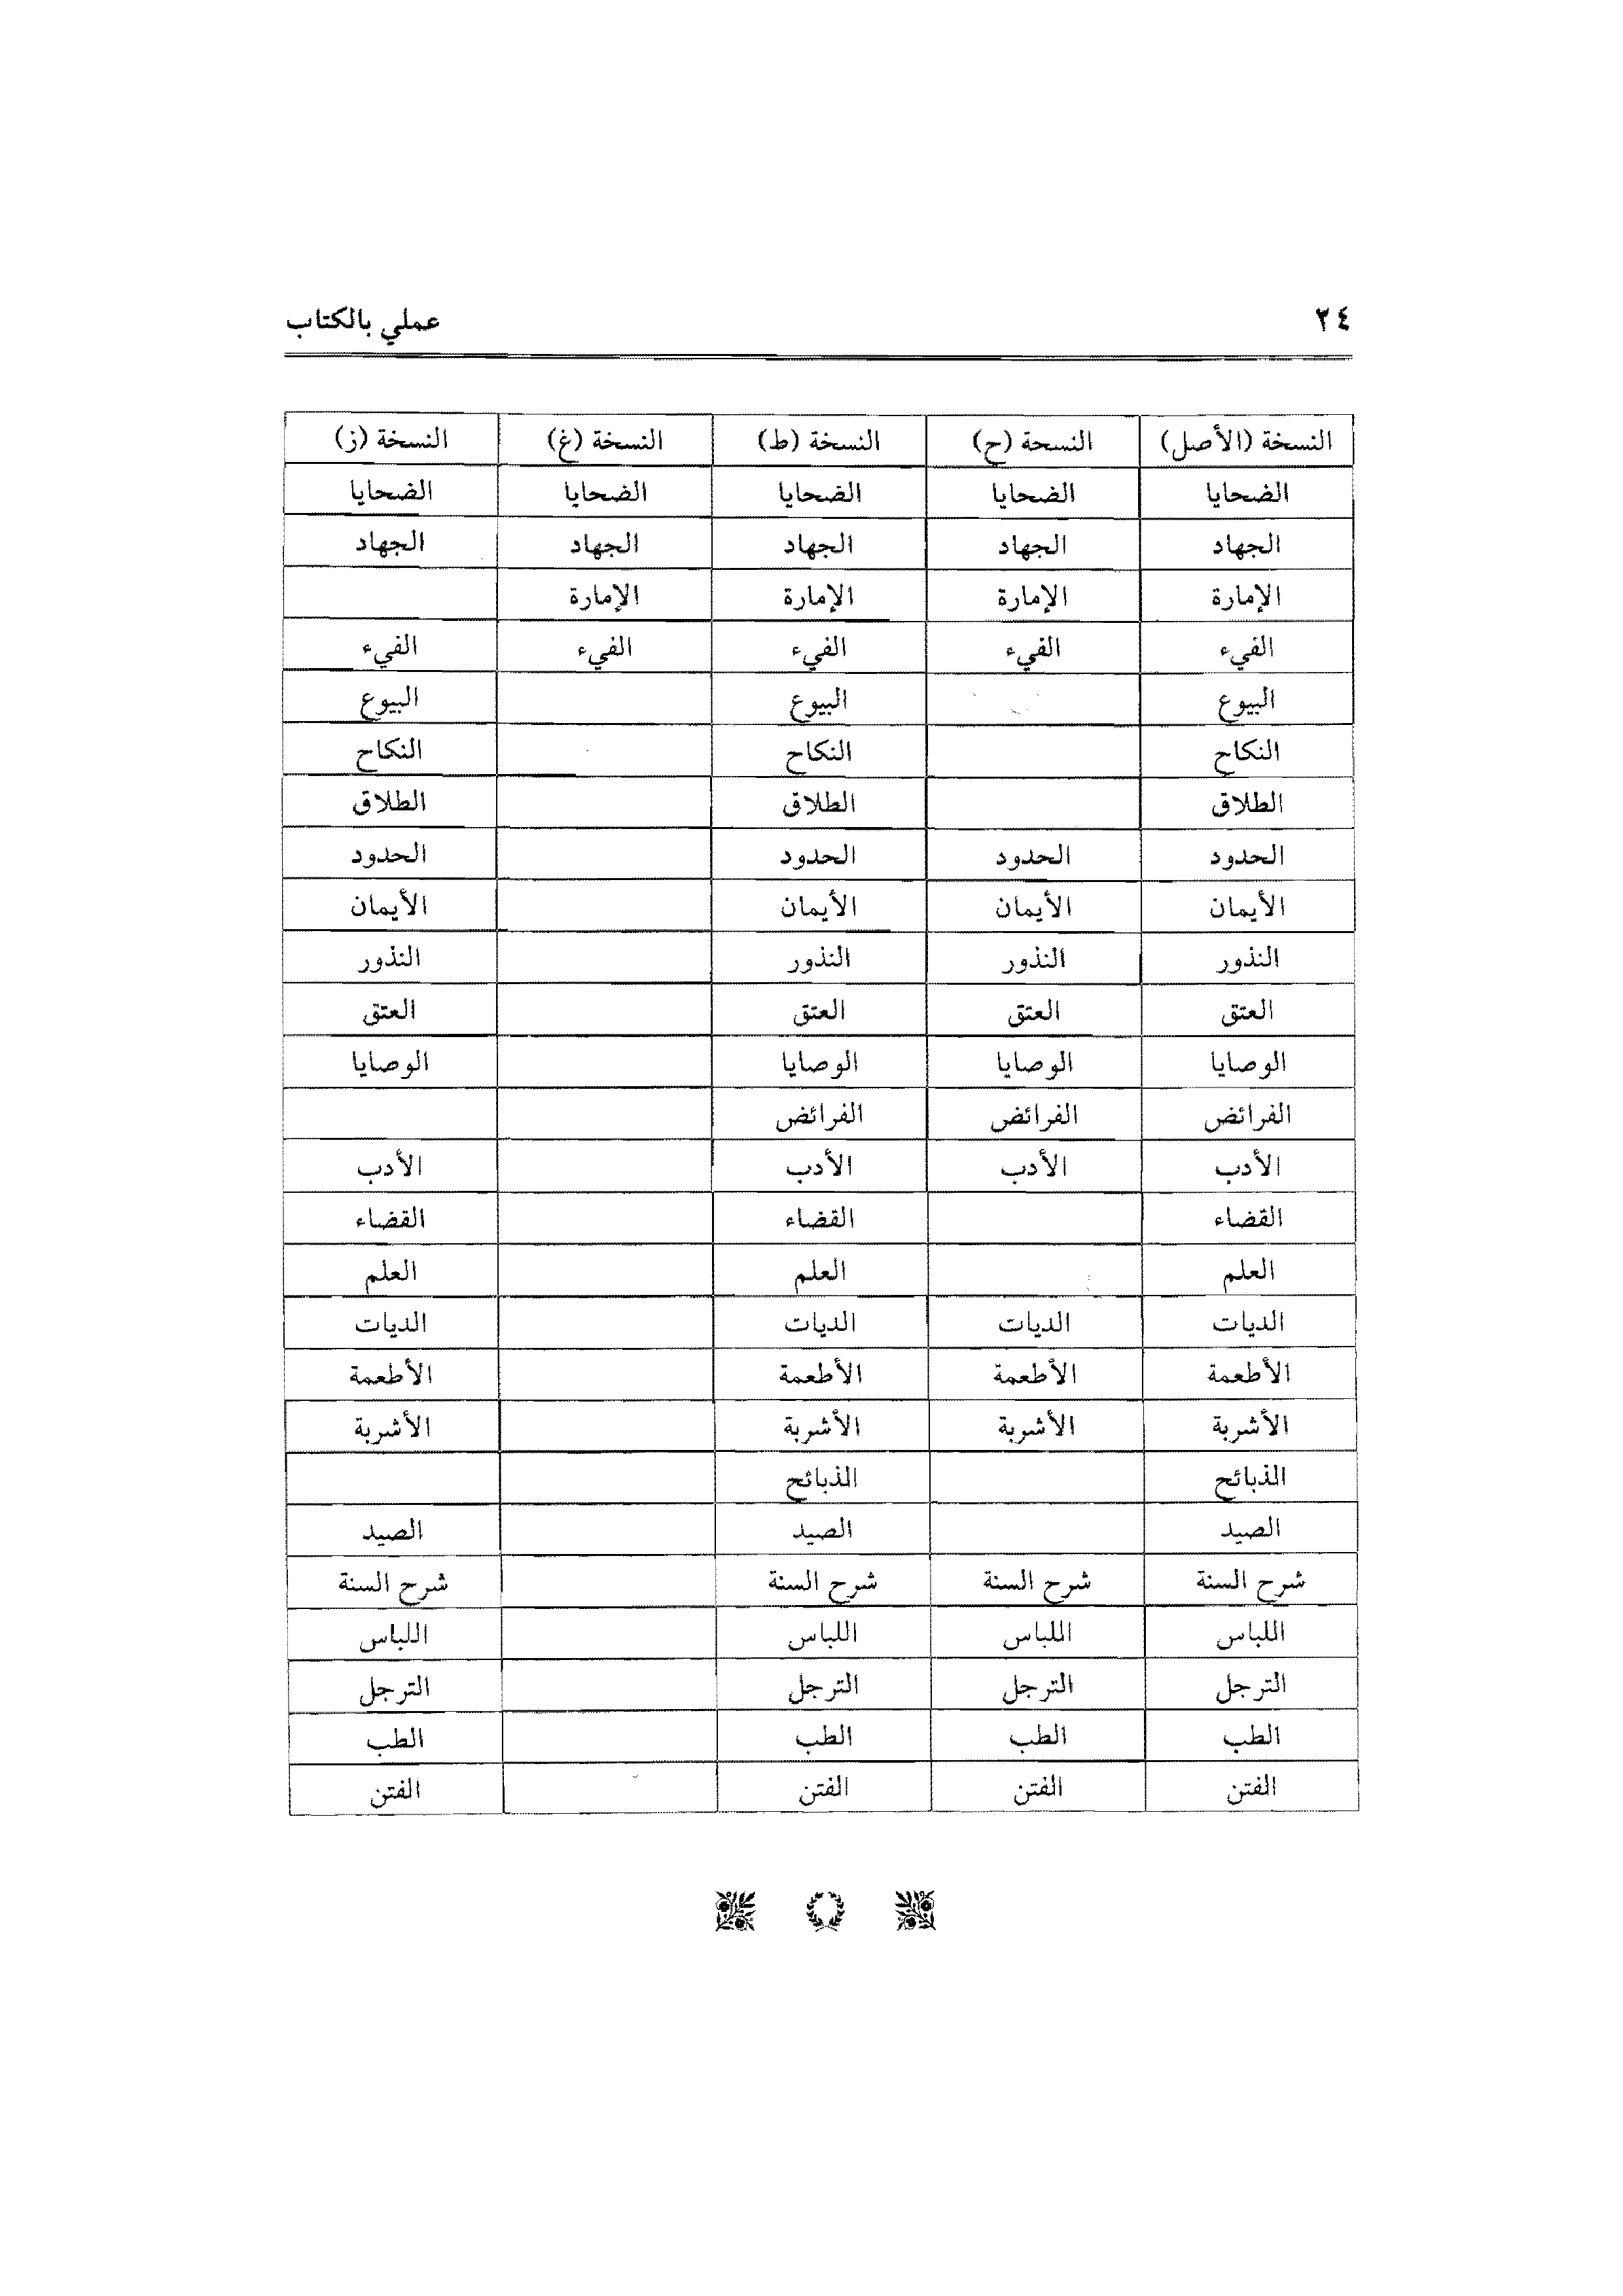 ٣٤ عملي بالكتاب
النسخة (الأصل) النسحة (ح) النسخة (ط) النسخة (غ) النسخة (ز)
الضحايا الضحايا الضحايا الضحايا الضحايا
الجهاد الجهاد الجهاد الجهاد الجهاد
الإمارة الإمارة الإمارة الإمارة
الفيء الفيء الفيء الفيء الفيء
البيوع البيوع البيوع
النكاح النكاح النكاح
الطلاق الطلاق الطلاق
الحدود الحدود الحدود الحدود
الأيمان الأيمان الأيمان الأيمان
النذور النذور النذور النذور
العتق العتق العتق العتق
الوصايا الوصايا الوصايا الوصايا
الفرائض الفرائض الفرائض
الأدب الأدب الأدب الأدب
القضاء القضاء القضاء
العلم العلم العلم
الديات الديات الديات الديات
الأطعمة الأطعمة الأطعمة الأطعمة
الأشربة الأشربة الأشربة الأشربة
الذبائح الذبائح
الصيد الصيد الصيد
شرح السنة شرح السنة شرح السنة شرح السنة
اللباس اللباس اللباس اللباس
الترجل الترجل الترجل الترجل
الطب الطب الطب الطب
الفتن الفتن الفتن الفتن